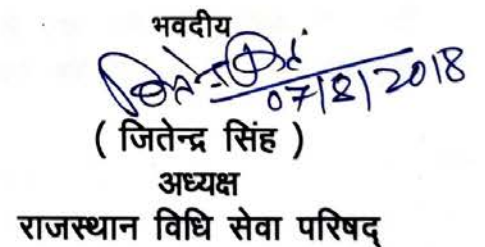 भवदीय
07/8/2018
( जितेन्द्र सिंह )
अध्यक्ष
राजस्थान विधि सेवा परिषद्